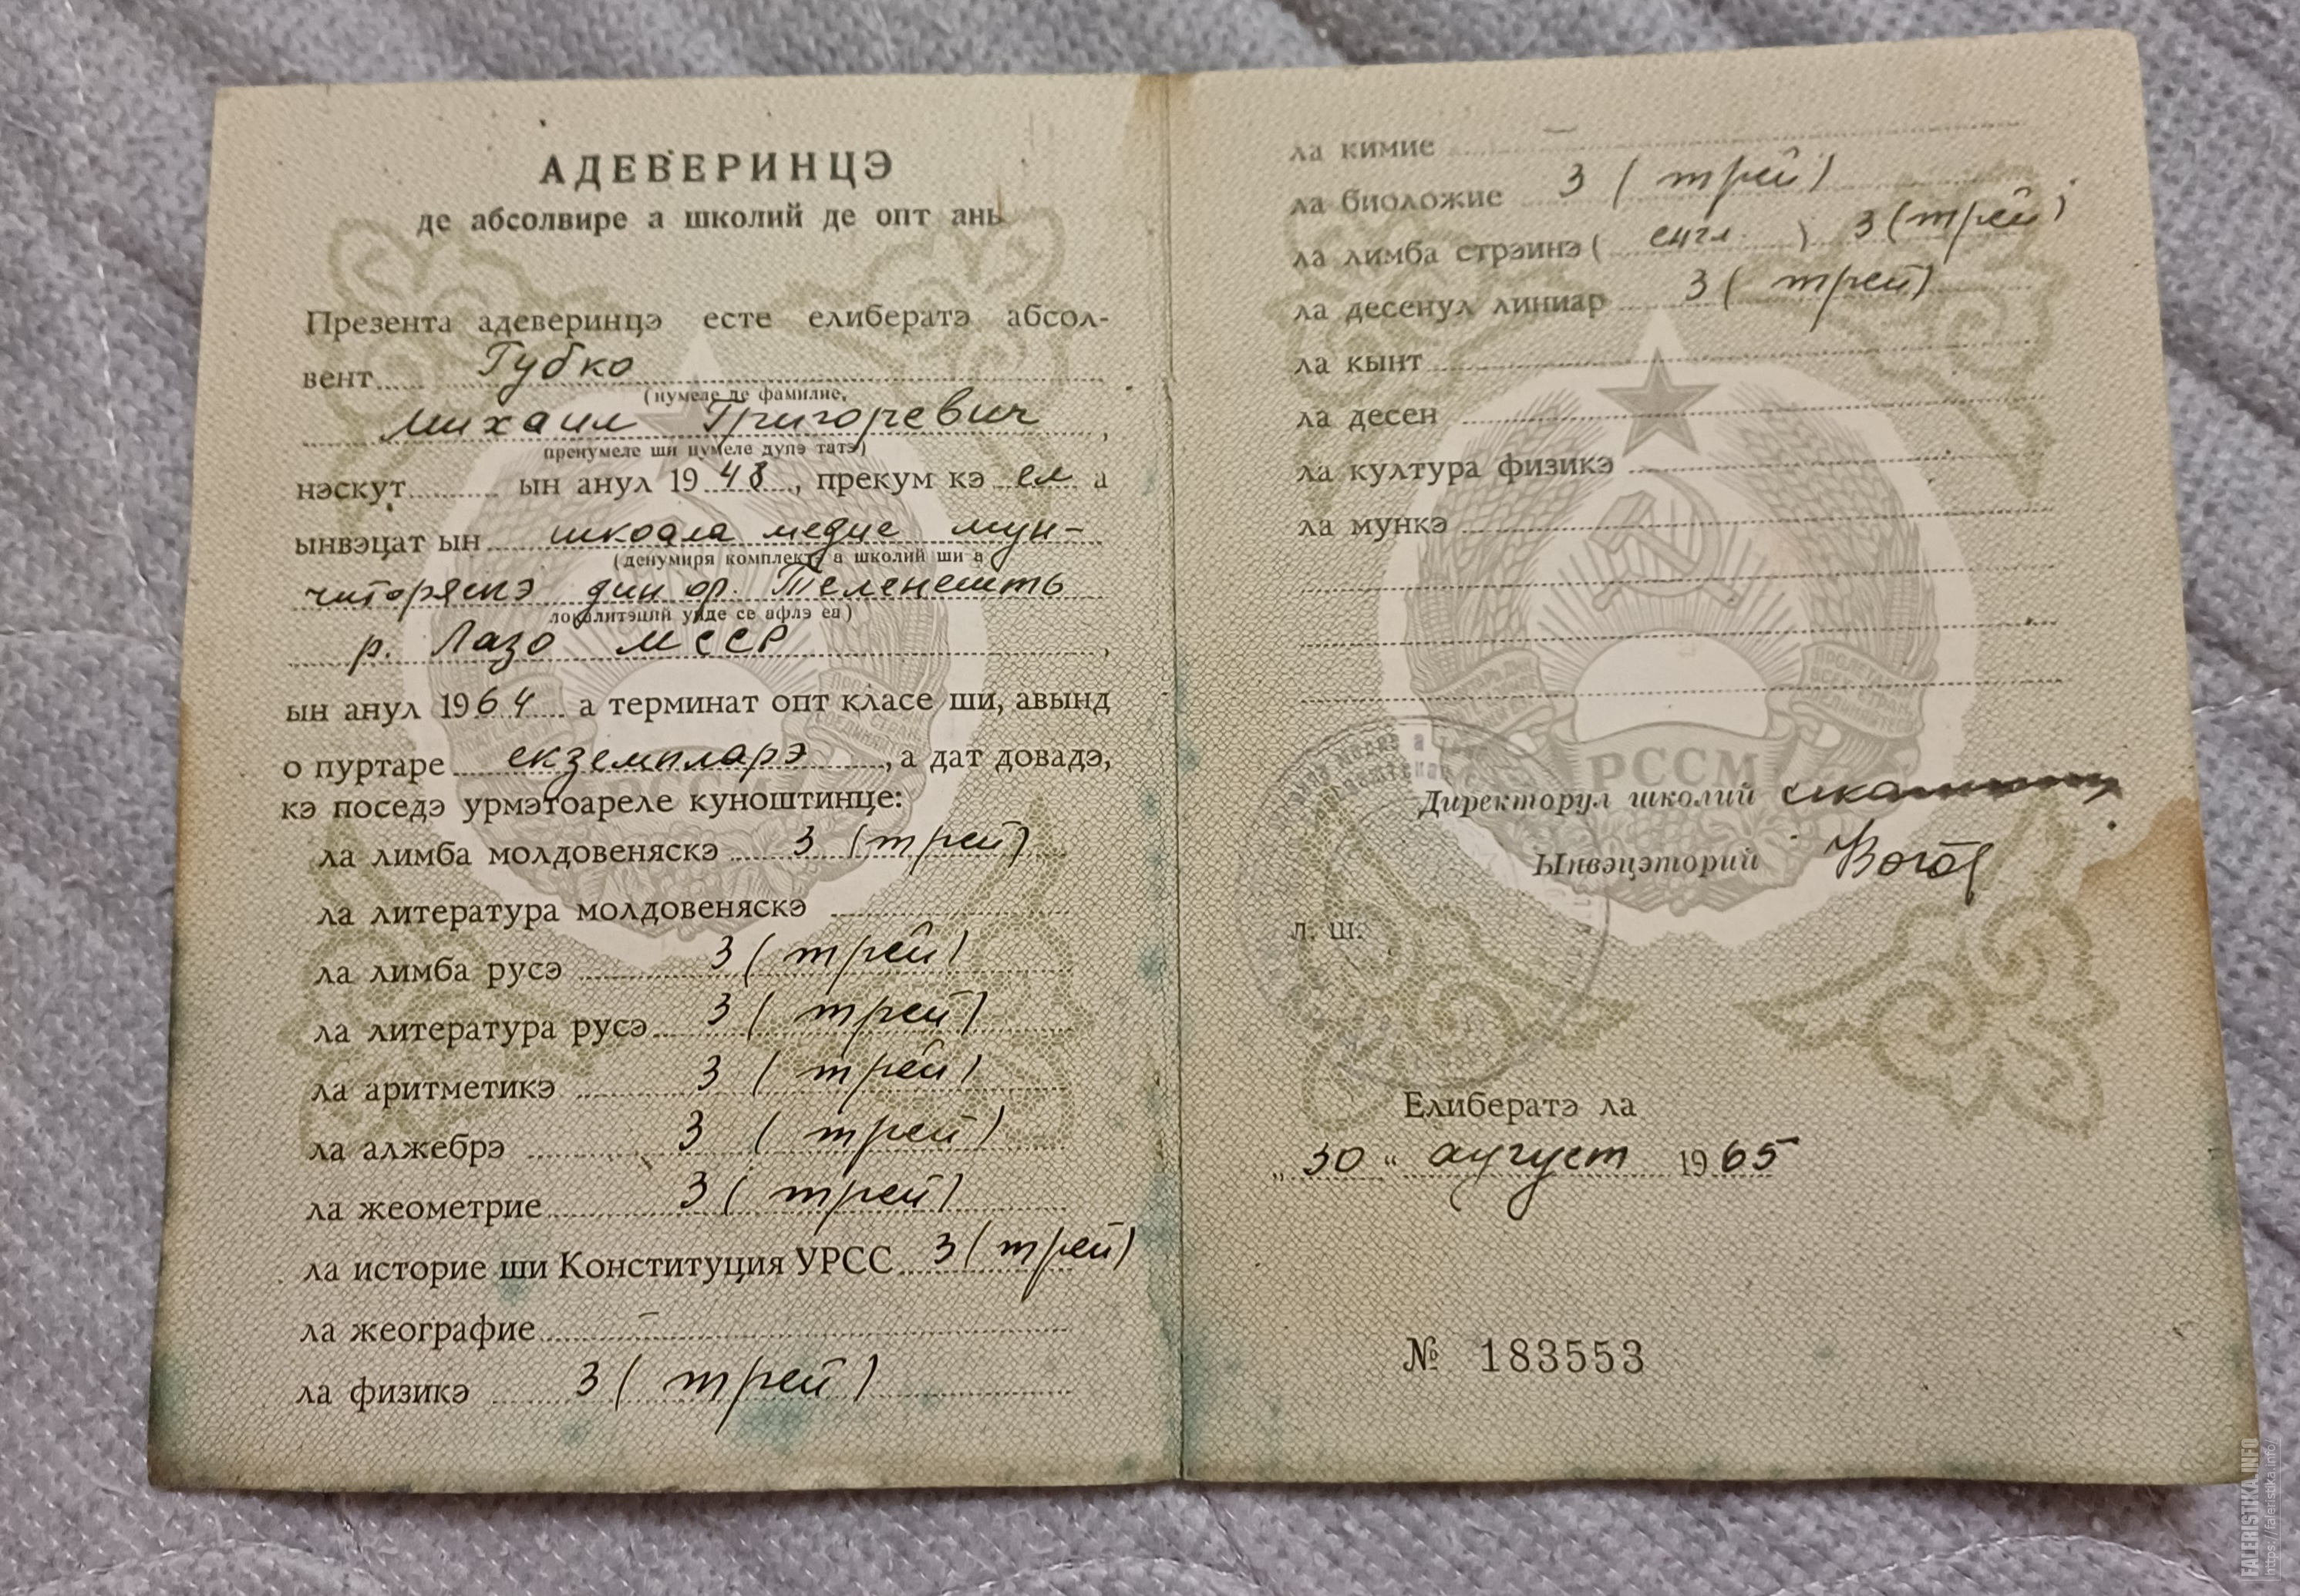 АДЕВЕРИНЦЭ
де абсолвире а школий де опт ань
Презента адеверинцэ есте елибератэ абсол-
вент Губко
(нумеле де фамилие,
Михаил Григоревич ,
пренумеле ши нумеле дупэ татэ)
нэскут ын анул 1948, прекум кэ ел а
ынвэцат ын школа медие мун-
(денумиря комплектэ а школий ши а
читоряскэ дин ор. Теленешть
локалитэций унде се афлэ еа)
р. Лазо МССР ,
ын анул 1964 а терминат опт класе ши, авынд
о пуртаре екземпларэ, а дат довадэ,
кэ поседэ урмэтоареле куноштинце:
ла лимба молдовеняскэ 3 (трей)
ла литература молдовеняскэ
ла лимба русэ 3 (трей)
ла литература русэ 3 (трей)
ла аритметикэ 3 (трей)
ла алжебрэ 3 (трей)
ла жеометрие 3 (трей)
ла историе ши Конституция УРСС 3 (трей)
ла жеографие —
ла физикэ 3 (трей)
ла кимие —
ла биоложие 3 (трей)
ла лимба стрэинэ ( енгл. ) 3 (трей)
ла десенул линиар 3 (трей)
ла кынт
ла десен
ла култура физикэ
ла мункэ
РССМ
Директорул школий
Ынвэцэторий
Л. Ш.
Елибератэ ла
„30“ август 1965
№ 183553
FALERISTIKA.INFO
https://faleristika.info/